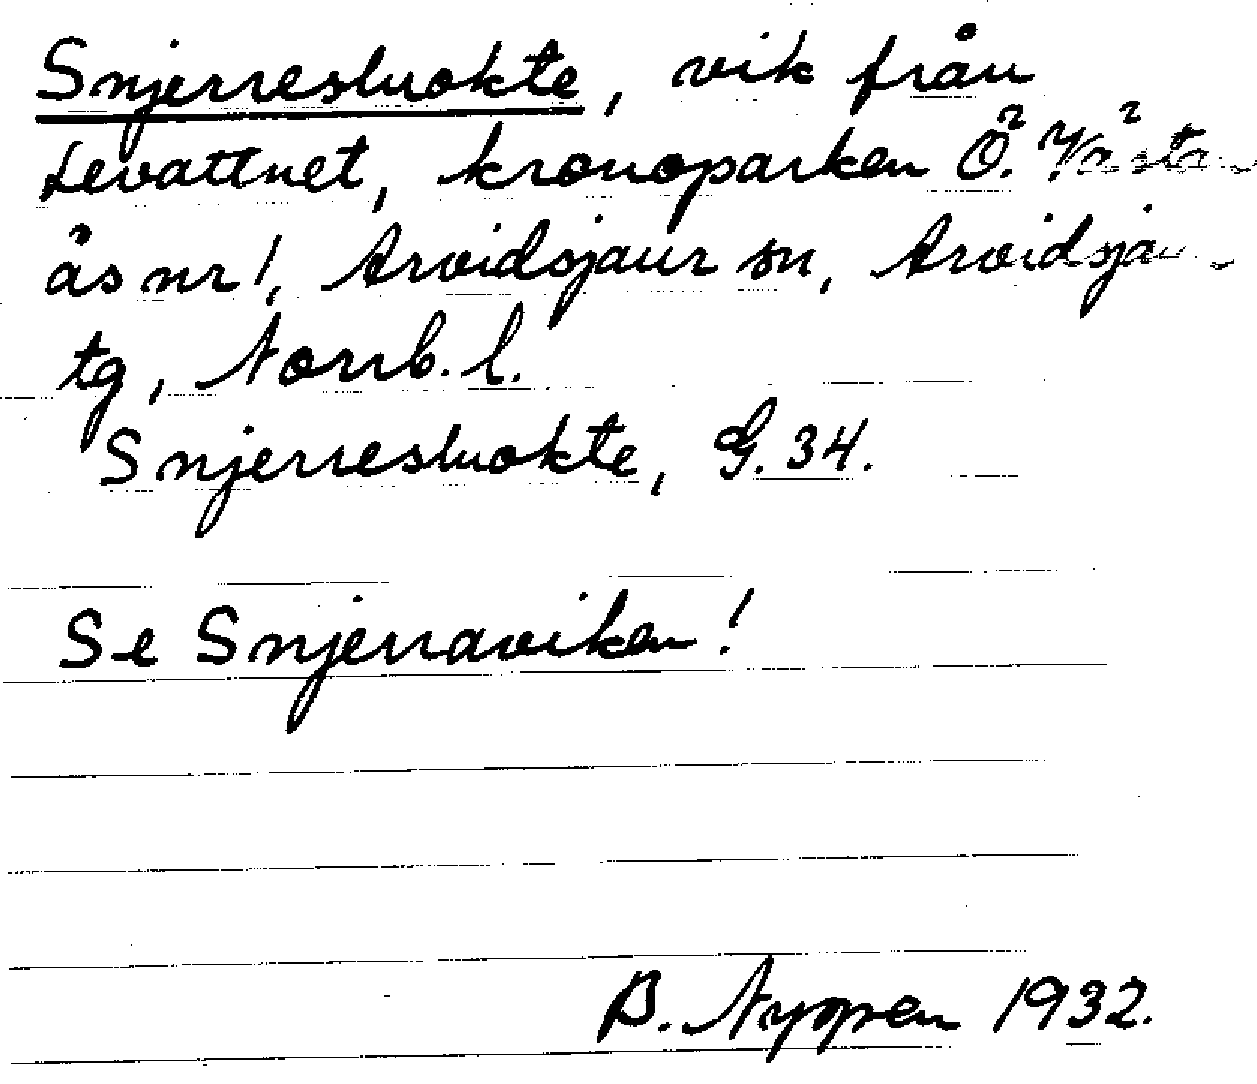 Snjerresluokte, vik från
Levattnet, kronoparken Ö. Västan
ås nr 1, Arvidsjaur sn, Arvidsjau
tg, Norrb. l.
Snjerresluokte, G. 34.
Se Snjerraviken!
B. Nyppen 1932.